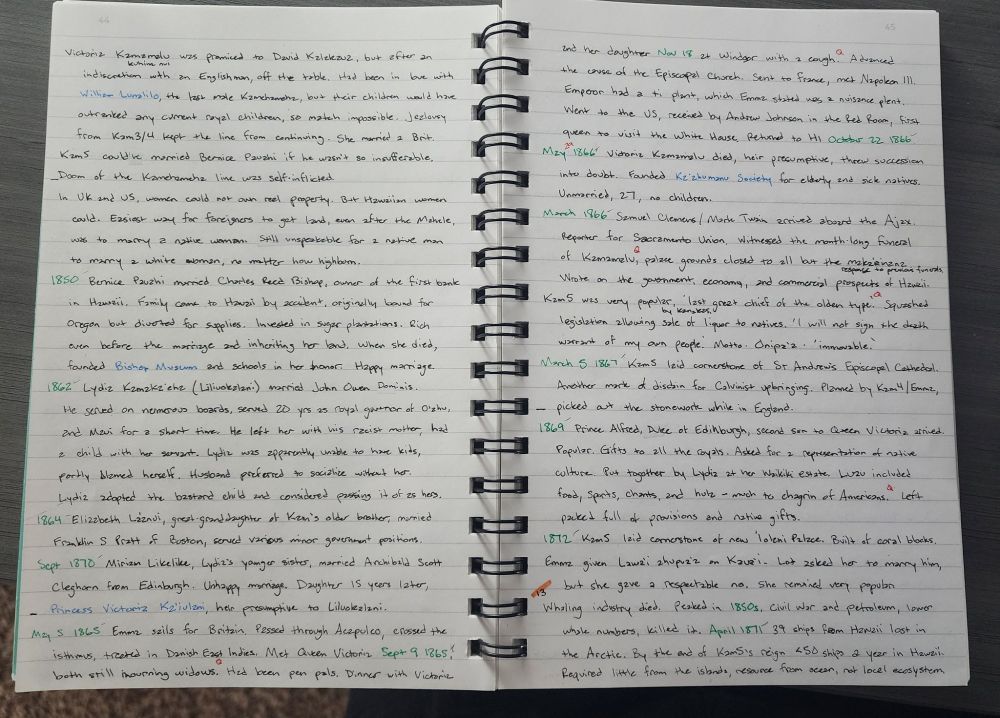 44
Victoria Kamamalu was promised to David Kalakaua, but after an
kuhina nui
indiscretion with an Englishman, off the table. Had been in love with
William Lunalilo, the last male Kamehameha, but their children would have
outranked any current royal children, so match impossible. Jealousy
from Kam3/4 kept the line from continuing. She married a Brit.
Kam5 could've married Bernice Pauahi if he wasn't so insufferable.
Doom of the Kamehameha line was self-inflicted
In UK and US, women could not own real property. But Hawaiian women
could. Easiest way for foreigners to get land, even after the Mahele,
was to marry a native woman. Still unspeakable for a native man
to marry a white woman, no matter how highborn.
1850 Bernice Pauahi married Charles Reed Bishop, owner of the first bank
in Hawaii. Family came to Hawaii by accident, originally bound for
Oregon but diverted for supplies. Invested in sugar plantations. Rich
even before the marriage and inheriting her land. When she died,
founded Bishop Museum and schools in her honor. Happy marriage.
1862 Lydia Kamaka'eha (Liliuokalani) married John Owen Dominis.
He served on numerous boards, served 20 yrs as royal governor of O'ahu,
and Maui for a short time. He left her with his racist mother, had
a child with her servant. Lydia was apparently unable to have kids,
partly blamed herself. Husband preferred to socialize without her.
Lydia adopted the bastard child and considered passing it of as hers.
1864 Elizabeth La'anui, great-granddaughter of Kam's older brother, married
Franklin S Pratt of Boston, served various minor government positions.
Sept 1870 Miriam Likelike, Lydia's younger sister, married Archibald Scott
Cleghorn from Edinburgh. Unhappy marriage. Daughter 15 years later,
Princess Victoria Ka'iulani, heir presumptive to Liliuokalani.
May 5 1865 Emma sails for Britain. Passed through Acapulco, crossed the
isthmus, treated in Danish East Indies. Met Queen Victoria Sept 9 1865,
both still mourning widows. Q Had been pen pals. Dinner with Victoria
45
and her daughter Nov 18 at Windsor with a cough. Q Advanced
the cause of the Episcopal Church. Sent to France, met Napoleon III.
Emperor had a ti plant, which Emma stated was a nuisance plant.
Went to the US, received by Andrew Johnson in the Red Room, first
queen to visit the White House. Retuned to HI October 22 1866
May 29 1866 Victoria Kamamalu died, heir presumptive, threw succession
into doubt. Founded Ka'ahumanu Society for elderly and sick natives.
Unmarried, 27, no children.
March 1866 Samuel Clemens/Mark Twain arrived aboard the Ajax.
Reporter for Sacramento Union, witnessed the month-long funeral
of Kamamalu, Q palace grounds closed to all but the maka'ainana
response to previous funerals.
Wrote on the government, economy, and commercial prospects of Hawaii.
Kam5 was very popular, 'last great chief of the olden type.' Q Squashed
by kanakas,
legislation allowing sale of liquor to natives. 'I will not sign the death
warrant of my own people'. Motto. Onipa'a. 'immovable.'
March 5 1867 Kam5 laid cornerstone of St Andrew's Episcopal Cathedral.
Another mark of disdain for Calvinist upbringing. Planned by Kam4/Emma,
picked out the stonework while in England.
1869 Prince Alfred, Duke of Edinburgh, second son to Queen Victoria arrived.
Popular. Gifts to all the royals. Asked for a representation of native
culture. Put together by Lydia at her Waikiki estate. Luau included
food, sports, chants, and hula - much to chagrin of Americans. Q Left
packed full of provisions and native gifts.
1872 Kam5 laid cornerstone of new 'Iolani Palace. Built of coral blocks.
Emma given Lawa'i ahupua'a on Kaua'i. Lot asked her to marry him,
but she gave a respectable no. She remained very popular
13
Whaling industry died. Peaked in 1850s, civil war and petroleum, lower
whale numbers, killed it. April 1871 39 ships from Hawaii lost in
the Arctic. By the end of Kam5's reign <50 ships a year in Hawaii.
Required little from the islands, resource from ocean, not local ecosystem